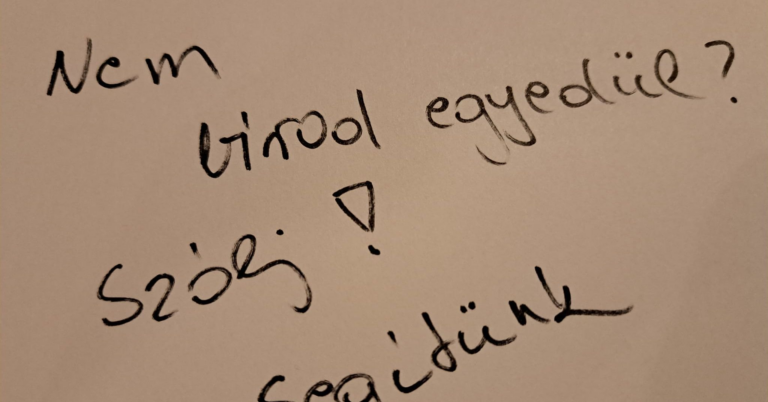 Nem
birod egyedül?
Szólj!
segitünk